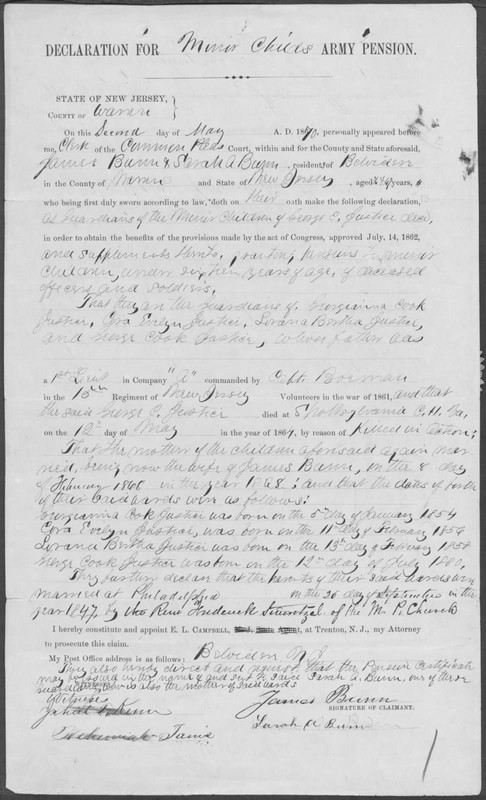 DECLARATION FOR Minor Childs ARMY PENSION.
STATE OF NEW JERSEY,
COUNTY OF Warren
On this Second day of May A. D. 1870, personally appeared before
me, Clerk of the Common Pleas Court, within and for the County and State aforesaid,
James Bunn & Sarah A Bunn, resident of Belvidere
in the County of Warren and State of New Jersey, aged years,
who being first duly sworn according to law, doth on their oath make the following declaration,
as Guardians of the Minor Children of George C. Justice decd,
in order to obtain the benefits of the provisions made by the act of Congress, approved July, 14, 1862,
and supplements thereto, granting pensions to minor
Children, under sixteen years of age, of deceased
officers and soldiers.
That they are the guardians of Georgianna Cook
Justice, Cora Evelyn Justice, Lorana Bertha Justice,
and George Cook Justice, whose father was
a 1st Lieut in Company "A" commanded by Capt. Bowman
in the 15th Regiment of New Jersey Volunteers in the war of 1861, and that
the said George C. Justice died at Spottsylvania C. H. Va,
on the 12th day of May in the year of 1864, by reason of Killed in action;
That the mother of the children aforesaid again mar-
ried, being now the wife of James Bunn, on the 8 day
of February in the year 1868; and that the dates of birth
of their said wards were as follows:
Georgianna Cook Justice was born on the 5th day of January 1854
Cora Evelyn Justice, was born on the 11th day of February 1856
Lorana Bertha Justice was born on the 13th day of February 1858
George Cook Justice was born on the 12th day of July 1860,
They further declare that the parents of their said wards were
married at Philadelphia on the 26 day of September in the
year 1847, by Rev Frederick of the M. P. Church
I hereby constitute and appoint E. L. CAMPBELL, at Trenton, N. J., my Attorney
to prosecute this claim.
My Post Office address is as follows: Belvidere N. J.
They also hereby direct and request that the Pension Certificate
may be issued in the name of and sent to said Sarah A. Bunn, one of the
guardians, who is also the mother of said wards
Witness
James Bunn
SIGNATURE OF CLAIMANT.
Sarah A Bunn